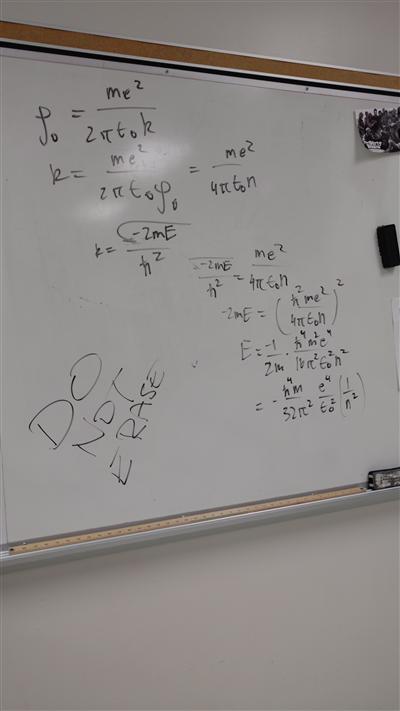 ρ₀ = me² / 2πε₀k
k = me² / 2πε₀ρ₀ = me² / 4πε₀n
k = √-2mE / ħ²
√-2mE / ħ² = me² / 4πε₀n
-2mE = (ħ²me² / 4πε₀n)²
E = -1/2m · ħ⁴m²e⁴ / 16π²ε₀²n²
= -ħ⁴m/32π² e⁴/ε₀² (1/n²)
DO
NOT
ERASE